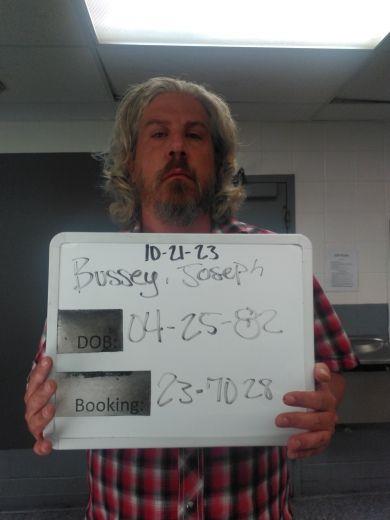 10-21-23
Bussey, Joseph
DOB: 04-25-82
Booking: 23-7028